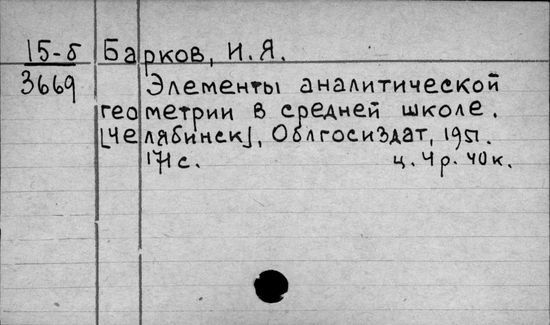 15-б Барков, И. Я.
3669 Элементы аналитической
геометрии в средней школе.
[Челябинск], Облгосиздат, 1951.
171 с. ц. 4 р. 40 к.